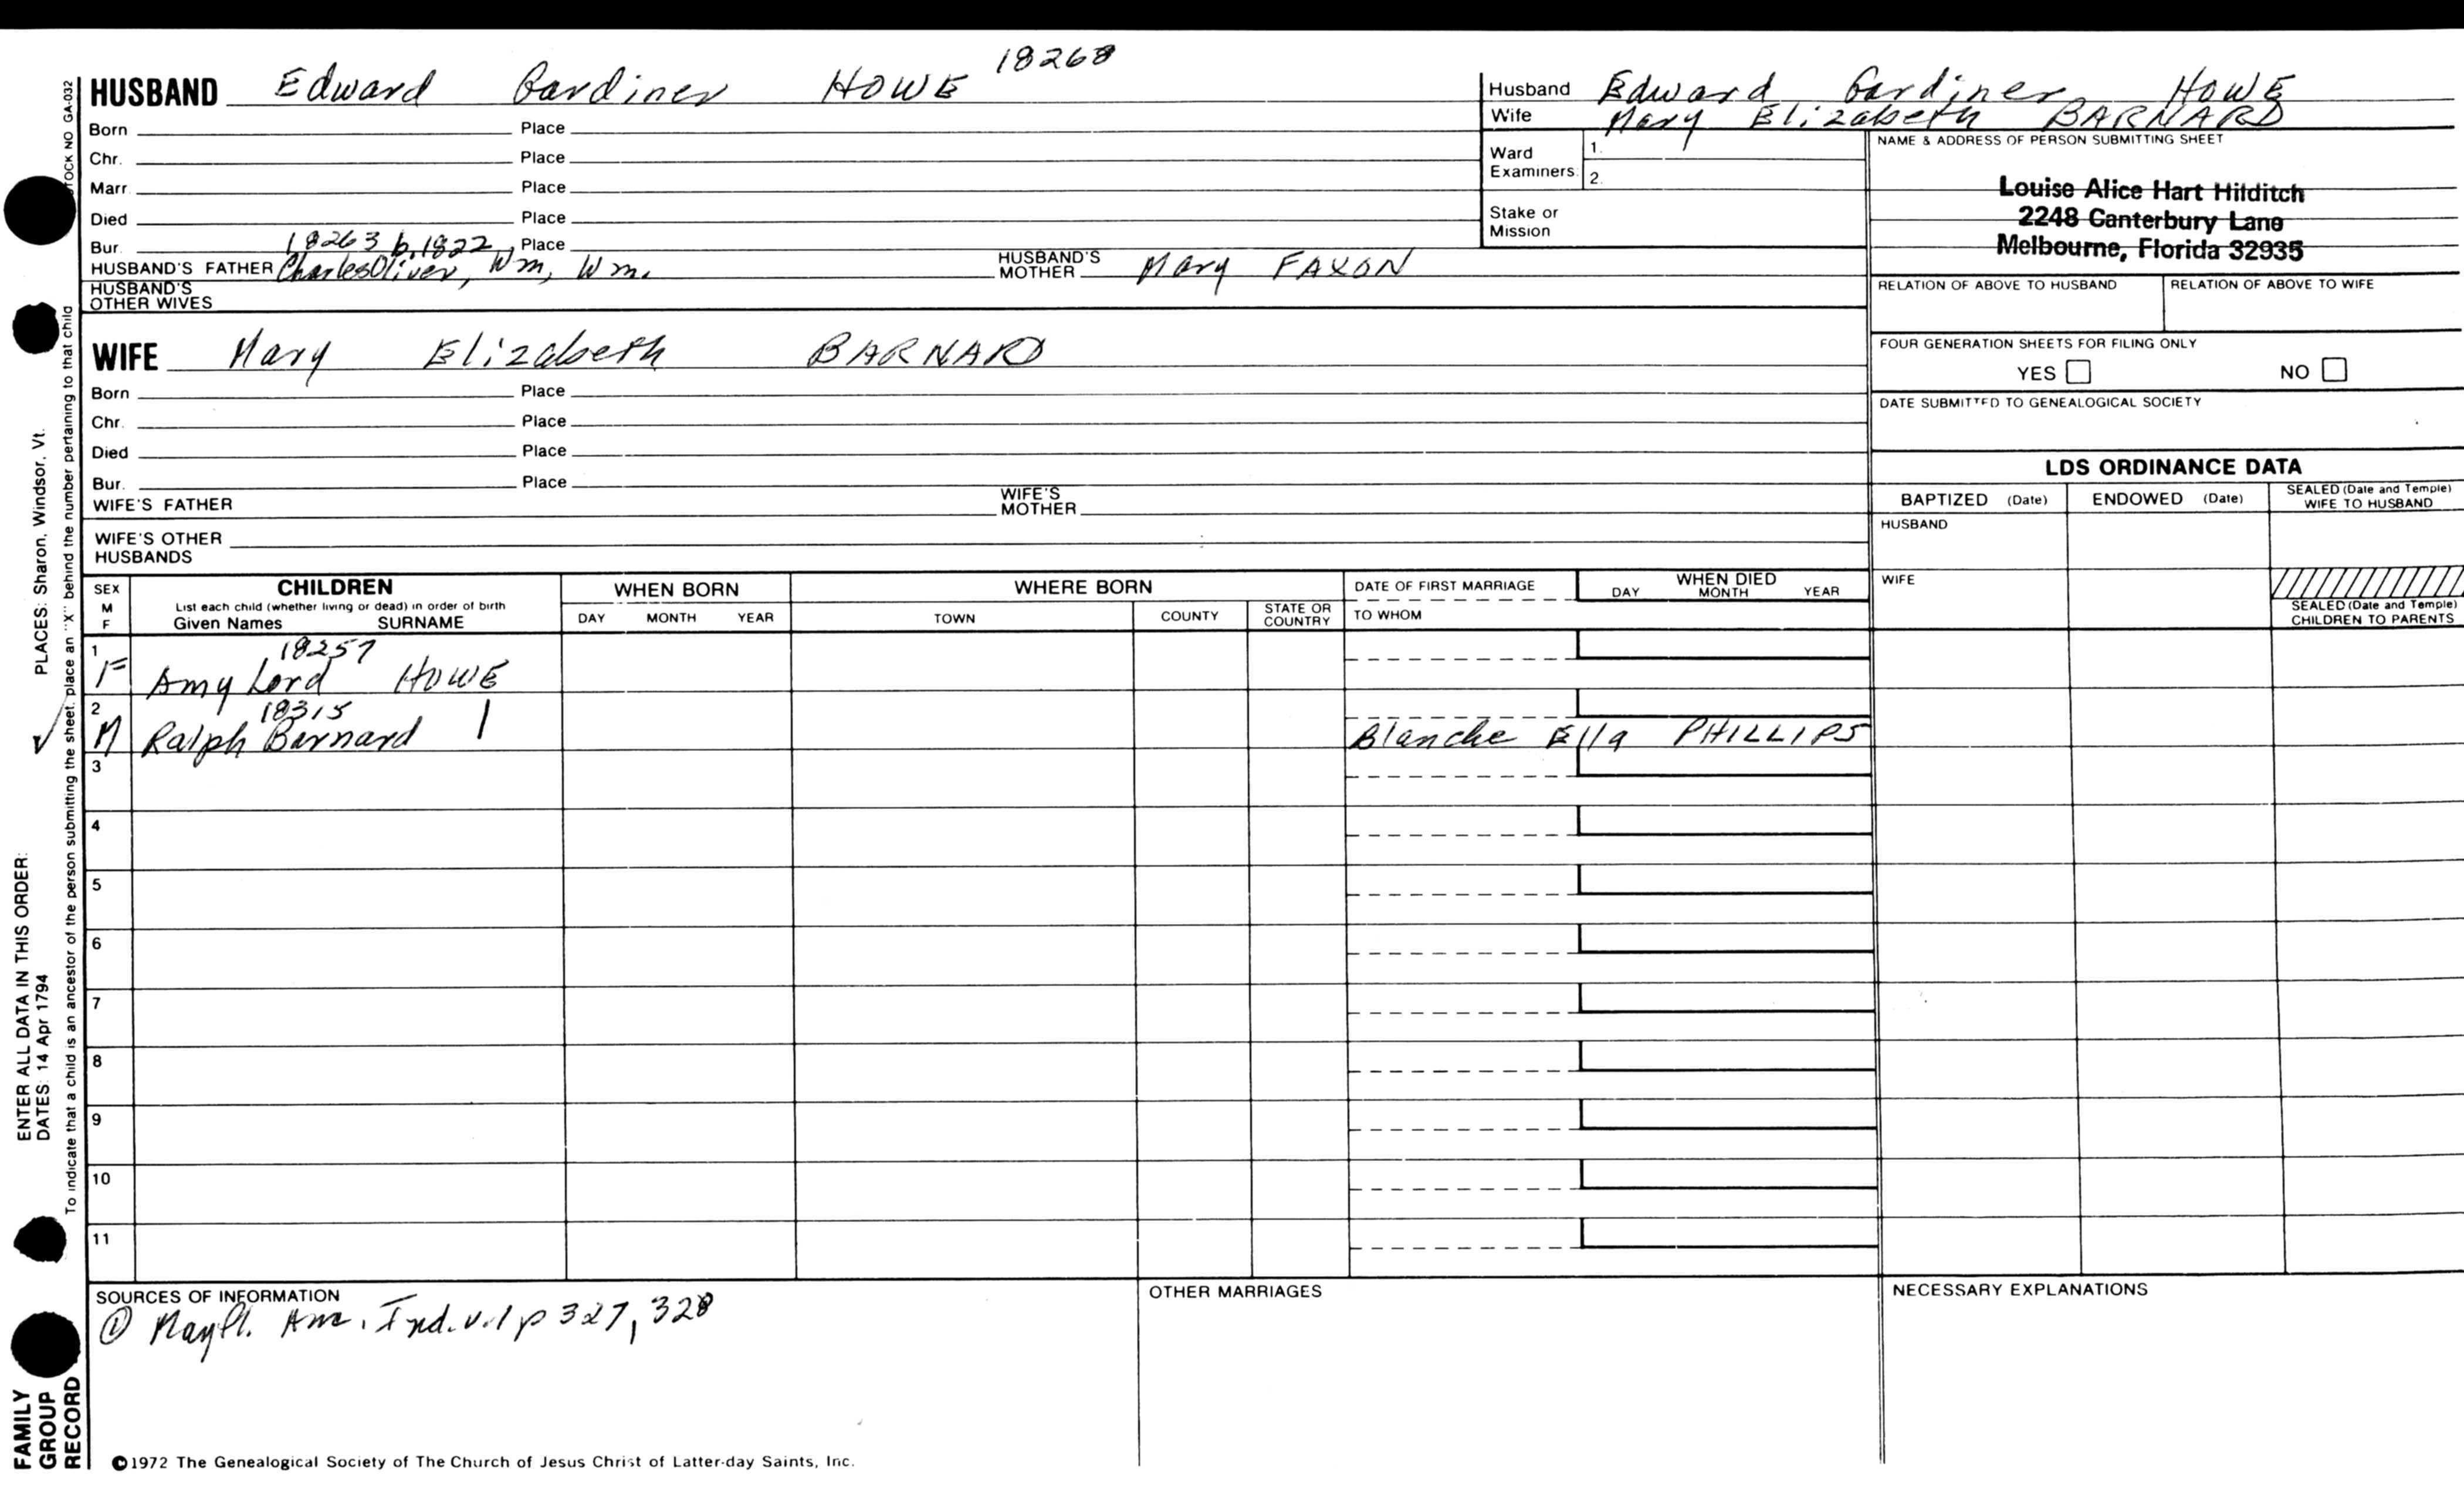 18268
HUSBAND Edward Gardiner HOWE
Born Place
Chr. Place
Marr. Place
Died Place
Bur. Place
18263 b. 1822
HUSBAND'S FATHER Charles Oliver, Wm, Wm. HUSBAND'S MOTHER Mary FAXON
HUSBAND'S OTHER WIVES
WIFE Mary Elizabeth BARNARD
Born Place
Chr. Place
Died Place
Bur. Place
WIFE'S FATHER WIFE'S MOTHER
WIFE'S OTHER HUSBANDS
Husband Edward Gardiner HOWE
Wife Mary Elizabeth BARNARD
Ward Examiners 1.
2.
Stake or Mission
NAME & ADDRESS OF PERSON SUBMITTING SHEET
Louise Alice Hart Hilditch
2248 Canterbury Lane
Melbourne, Florida 32935
RELATION OF ABOVE TO HUSBAND RELATION OF ABOVE TO WIFE
FOUR GENERATION SHEETS FOR FILING ONLY
YES NO
DATE SUBMITTED TO GENEALOGICAL SOCIETY
LDS ORDINANCE DATA
BAPTIZED (Date) ENDOWED (Date) SEALED (Date and Temple) WIFE TO HUSBAND
HUSBAND
WIFE
SEALED (Date and Temple) CHILDREN TO PARENTS
SEX M F CHILDREN WHEN BORN WHERE BORN DATE OF FIRST MARRIAGE WHEN DIED
List each child (whether living or dead) in order of birth
Given Names SURNAME DAY MONTH YEAR TOWN COUNTY STATE OR COUNTRY TO WHOM DAY MONTH YEAR
1 18257
F Amy Lord HOWE
2 18315
M Ralph Barnard | Blanche Ella PHILLIPS
3
4
5
6
7
8
9
10
11
SOURCES OF INFORMATION OTHER MARRIAGES NECESSARY EXPLANATIONS
① Mayfl. Ind. v. 1 p 327, 328
©1972 The Genealogical Society of The Church of Jesus Christ of Latter-day Saints, Inc.
FAMILY GROUP RECORD
ENTER ALL DATA IN THIS ORDER:
DATES: 14 Apr 1794 PLACES: Sharon, Windsor, Vt.
To indicate that a child is an ancestor of the person submitting the sheet, place an "X" behind the number pertaining to that child
STOCK NO GA-032